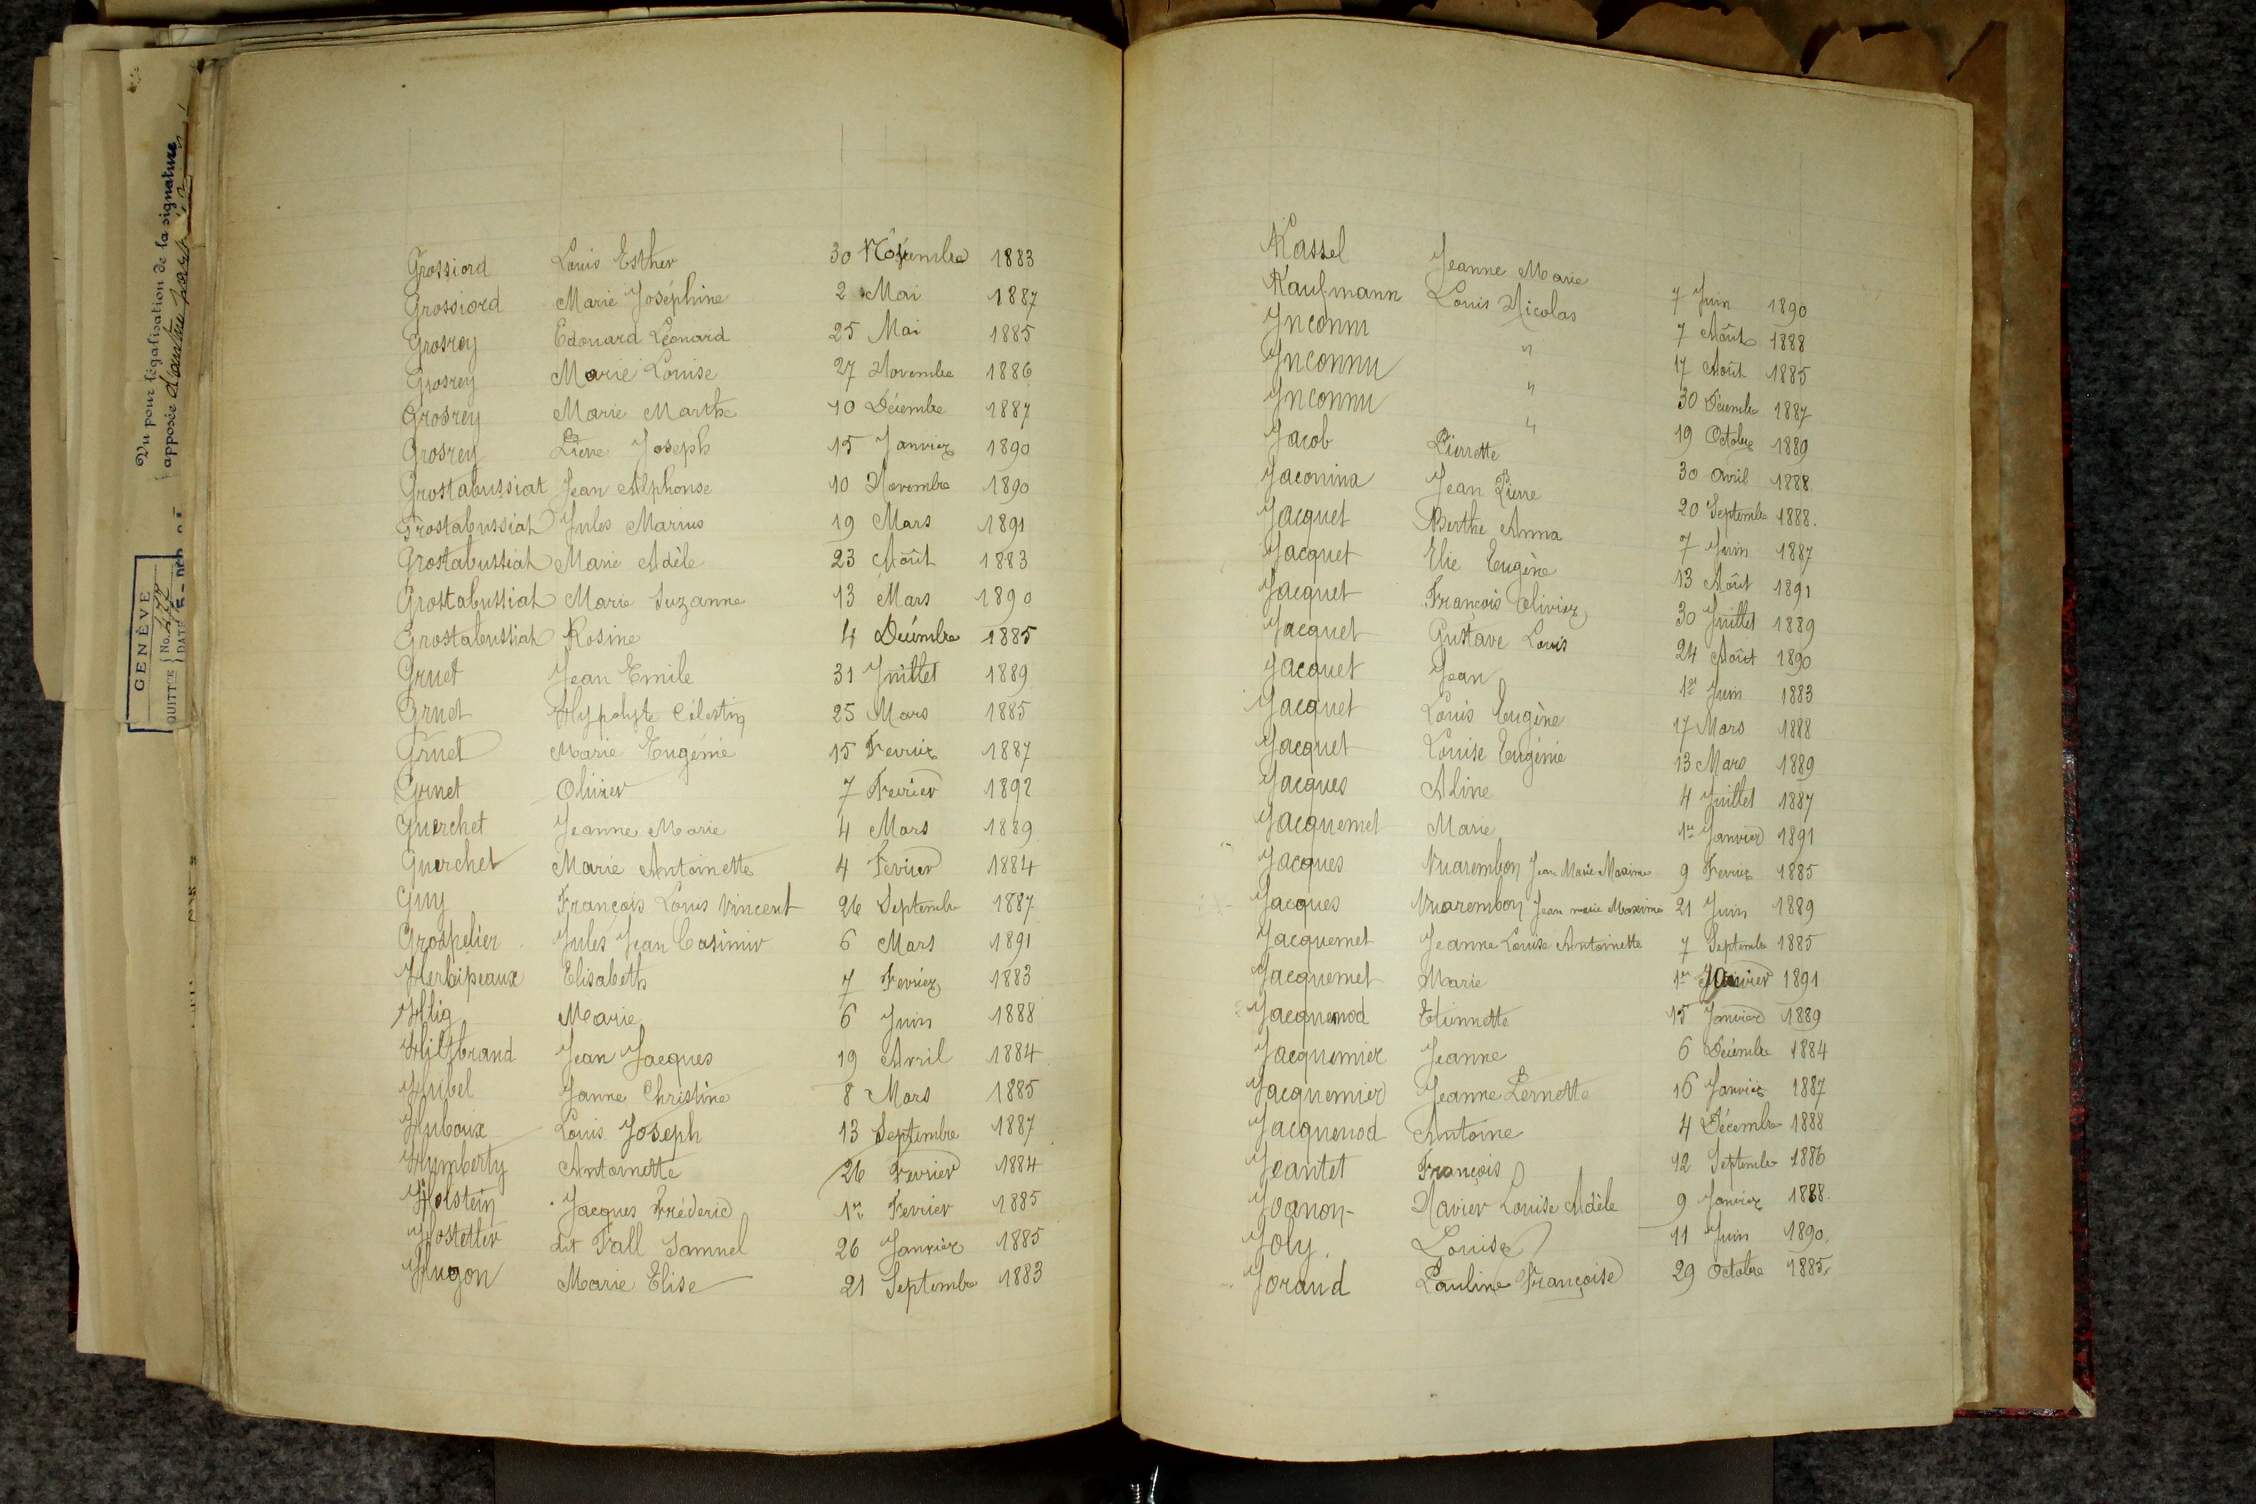 Vu pour légalisation de la signature
apposée d'autre part
GENÈVE
QUITTCE No.
DATE
Grossiord Louis Esther 30 Novembre 1883
Grossiord Marie Joséphine 2 Mai 1887
Grosrey Edouard Léonard 25 Mai 1885
Grosrey Marie Louise 27 Novembre 1886
Grosrey Marie Marthe 10 Décembre 1887
Grosrey Pierre Joseph 15 Janvier 1890
Grostabussiat Jean Alphonse 10 Novembre 1890
Grostabussiat Jules Marius 19 Mars 1891
Grostabussiat Marie Adèle 23 Août 1883
Grostabussiat Marie Suzanne 13 Mars 1890
Grostabussiat Rosine 4 Décembre 1885
Gruet Jean Emile 31 Juillet 1889
Gruet Hypolyte Célestin 25 Mars 1885
Gruet Marie Eugénie 15 Fevrier 1887
Gruet Olivier 7 Fevrier 1892
Guerchet Jeanne Marie 4 Mars 1889
Guerchet Marie Antoinette 4 Fevrier 1884
Guy François Louis Vincent 26 Septembre 1887
Grospelier Jules Jean Casimir 6 Mars 1891
Herbipeaux Elisabeth 7 Fevrier 1883
Hlig Marie 6 Juin 1888
Hiltbrand Jean Jacques 19 Avril 1884
Hubel Janne Christine 8 Mars 1885
Huboux Louis Joseph 13 Septembre 1887
Humberty Antoinette 26 Fevrier 1884
Holstein Jacques Fréderic 1er Fevrier 1885
Hostetler dit Fall Samuel 26 Janvier 1885
Hugon Marie Elise 21 Septembre 1883
Kassel Jeanne Marie 7 Juin 1890
Kaufmann Louis Nicolas 7 Août 1888
Ynconnu " 17 Août 1885
Ynconnu " 30 Décembre 1887
Ynconnu " 19 Octobre 1889
Jacob Pierrette 30 Avril 1888
Jaconina Jean Pierre 20 Septembre 1888.
Jacquet Berthe Anna 7 Juin 1887
Jacquet Elie Eugène 13 Août 1891
Jacquet François Olivier 30 Juillet 1889
Jacquet Gustave Louis 24 Août 1890
Jacquet Jean 1er Juin 1883
Jacquet Louis Eugène 17 Mars 1888
Jacquet Louise Eugénie 13 Mars 1889
Jacques Aline 4 Juillet 1887
Jacquemet Marie 1er Janvier 1891
Jacques Vuarembon Jean Marie Maxime 9 Fevrier 1885
Jacques Vuarembon Jean marie Maxime 21 Juin 1889
Jacquemet Jeanne Louise Antoinette 7 Septembre 1885
Jacquemet Marie 1er Janvier 1891
Jacquenod Etiennette 15 Janvier 1889
Jacquemier Jeanne 6 Décembre 1884
Jacquemier Jeanne Pernette 16 Janvier 1887
Jacquenod Antoine 4 Décembre 1888
Jeantet François 12 Septembre 1886
Joanon- Xavier Louise Adèle 9 Janvier 1888.
Joly. Louise 11 Juin 1890.
Joraud Pauline Françoise 29 Octobre 1885.